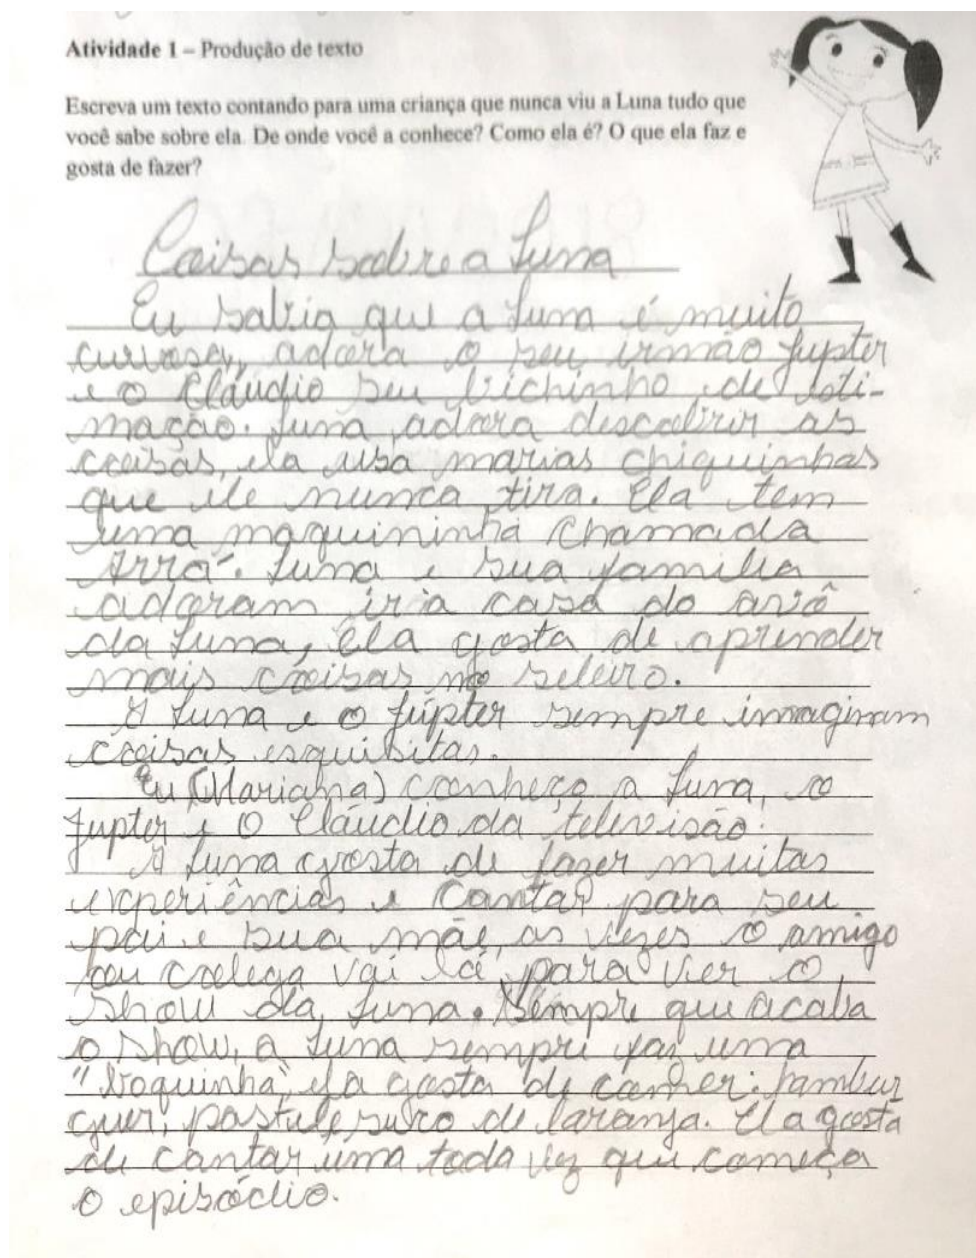 Atividade 1 – Produção de texto
Escreva um texto contando para uma criança que nunca viu a Luna tudo que
você sabe sobre ela. De onde você a conhece? Como ela é? O que ela faz e
gosta de fazer?
Coisas sobre a Luna
Eu sabia que a Luna é muito
curiosa, adora o seu irmão Jupter
e o Cláudio seu bichinho de esti-
mação. Luna adora descobrir as
coisas, ela usa marias chiquinhas
que ele nunca tira. Ela tem
uma maquininha chamada
Luna e sua familia
adoram ir a casa do avô
da Luna, ela gosta de aprender
mais coisas no seleiro.
A Luna e o Júpter sempre imaginam
coisas esquisitas.
Eu (Mariana) conheço a Luna, o
Jupter e o Cláudio da televisão.
A Luna gosta de fazer muitas
experiências e cantar para seu
pai e sua mãe, as vezes o amigo
ou colega vai lá para ver o
show da Luna. Sempre que acaba
o show, a Luna sempre faz uma
"boquinha", ela gosta de comer: hambur
guer, pastel e suco de laranja. Ela gosta
de cantar uma toda vez que começa
o episódio.